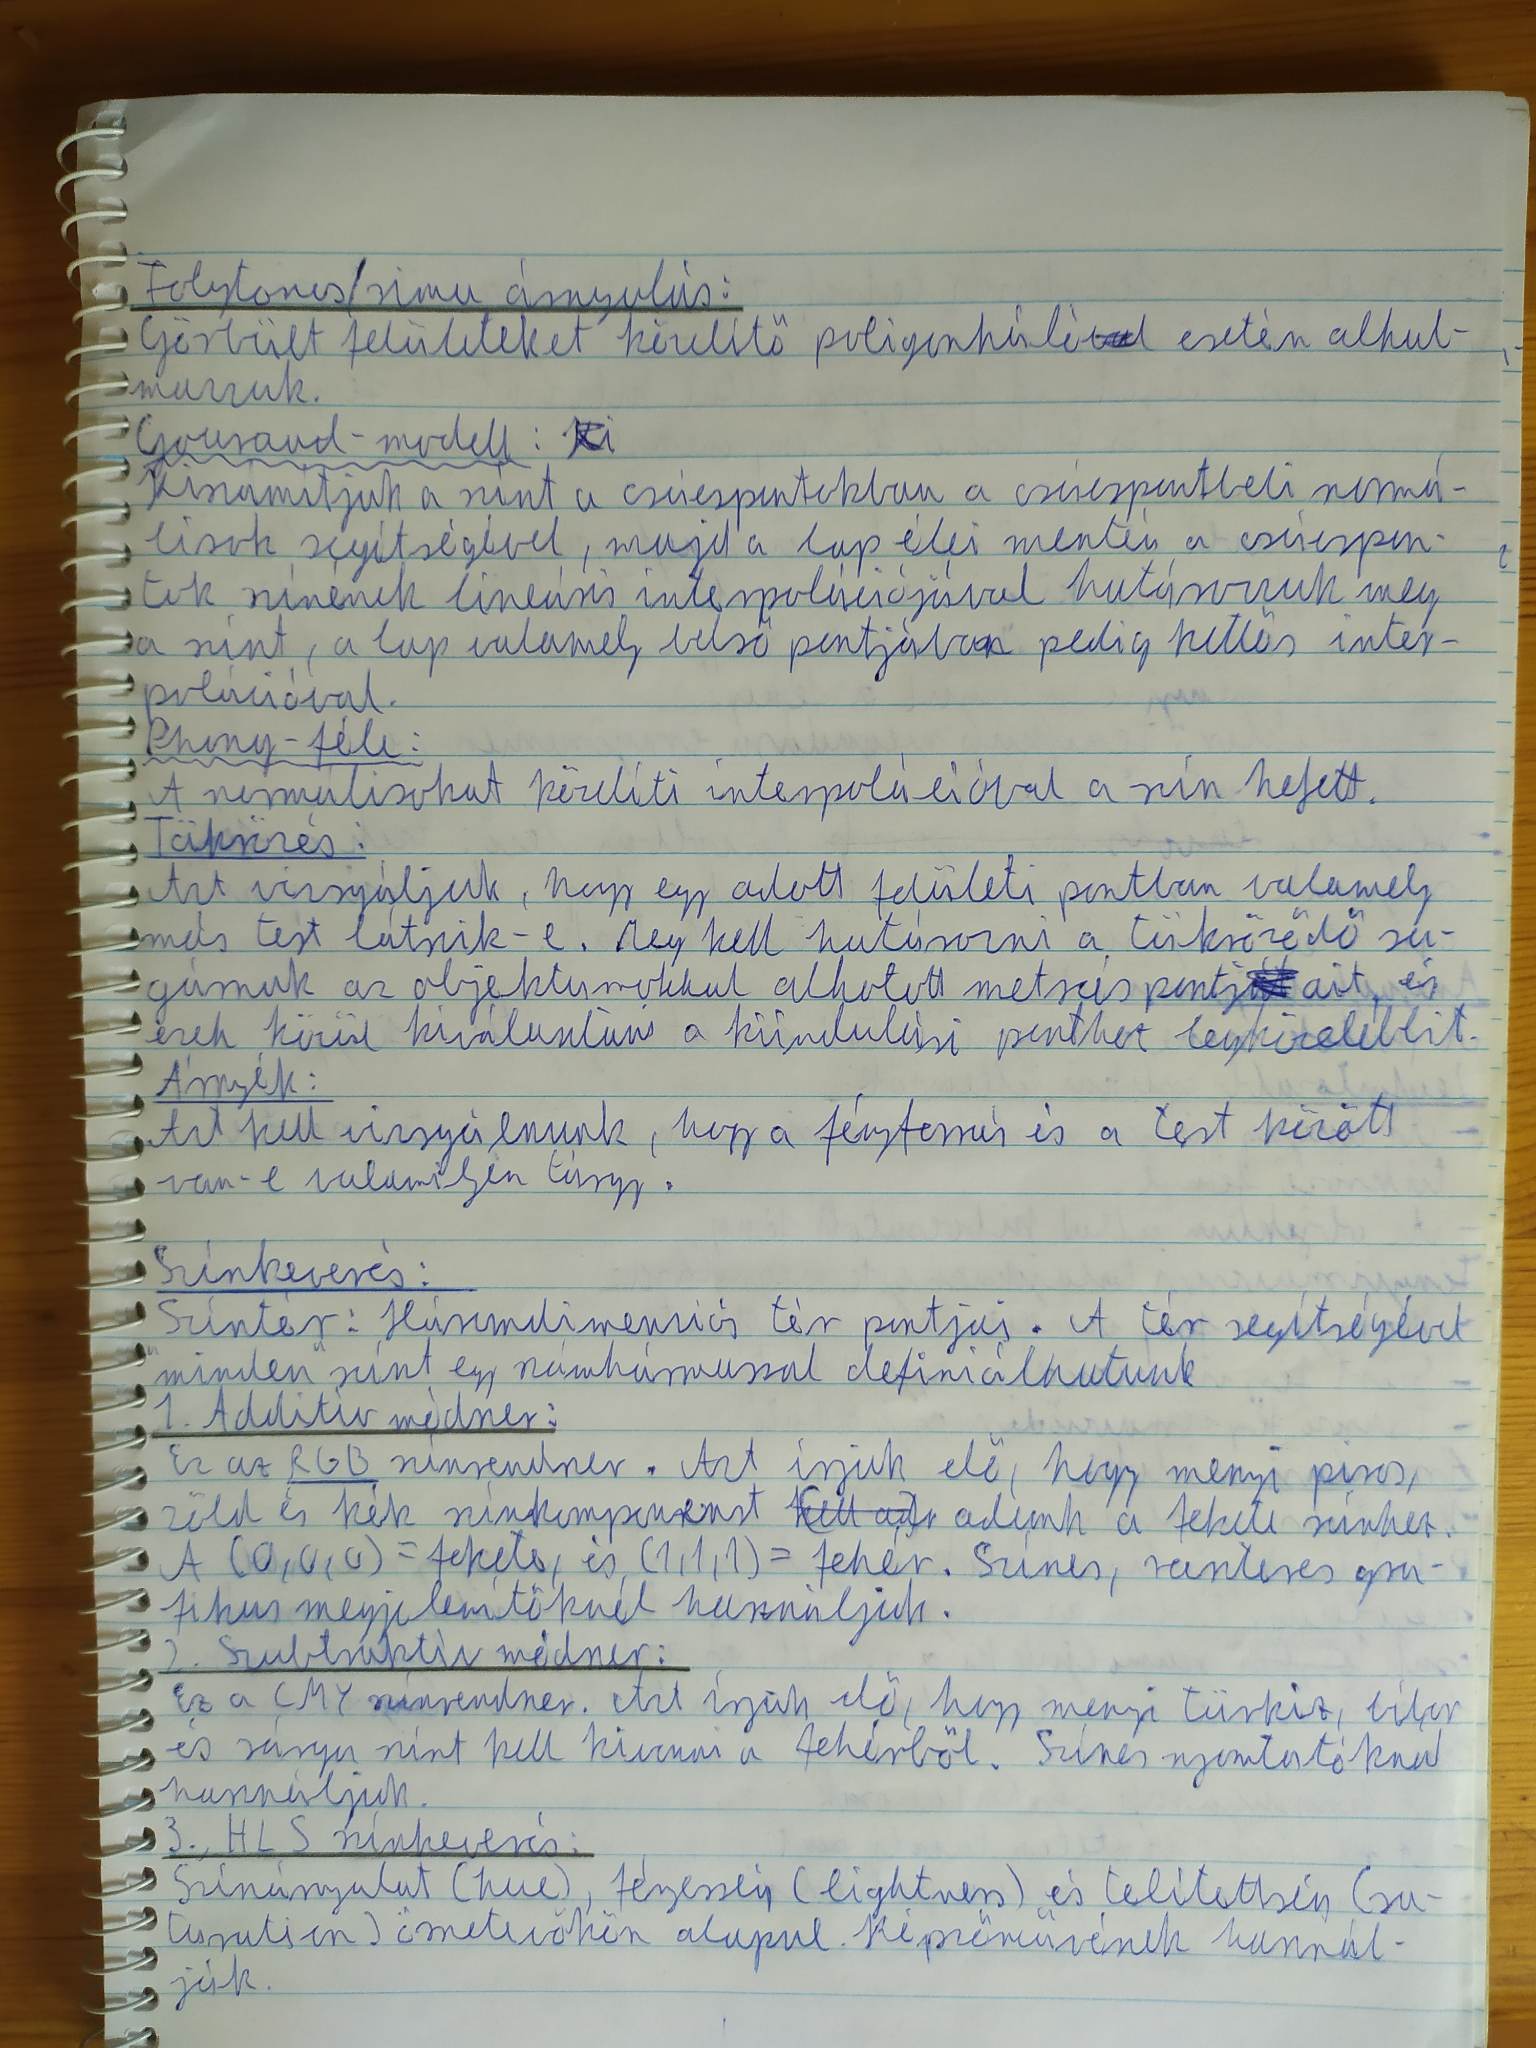 Folytonos/sima árnyalás:
Görbült felületeket közelítő poligonháló esetén alkal-
mazzuk.
Gouraud-modell: Ki
Kiszámítjuk a színt a csúcspontokban a csúcspontbeli normá-
lisok segítségével, majd a lap élei mentén a csúcspon-
tok színének lineáris interpolációjával határozzuk meg
a színt, a lap valamely belső pontjában pedig kettős inter-
polációval.
Phong-féle:
A normálisokat közelíti interpolációval a szín helyett.
Tükrözés:
Azt vizsgáljuk, hogy egy adott felületi pontban valamely
más test látszik-e. Meg kell határozni a tükröződő su-
gárnak az objektumokkal alkotott metszéspontjait, és
ezek közül kiválasztani a kiindulási ponthoz legközelebbit.
Árnyék:
Azt kell vizsgálnunk, hogy a fényforrás és a test között
van-e valamilyen tárgy.
Színkeverés:
Színtér: Háromdimenziós tér pontjai. A tér segítségével
"minden" színt egy számhármassal definiálhatunk
1. Additív módszer:
Ez az RGB színrendszer. Azt írjuk elő, hogy menyi piros,
zöld és kék színkomponenst kell ad adunk a fekete színhez.
A (0,0,0) = fekete, és (1,1,1) = fehér. Színes, raszteres gra-
fikus megjelenítőknél használjuk.
2. Szubtraktív módszer:
Ez a CMY színrendszer. Azt írjuk elő, hogy menyi türkiz, bíbor
és sárga színt kell kivonni a fehérből. Színes nyomtatóknál
használjuk.
3., HLS színkeverés:
Színárnyalat (hue), fényesség (lightness) és telítettség (sa-
turation) ömetevőkön alapul. Képzőművészek használ-
ják.